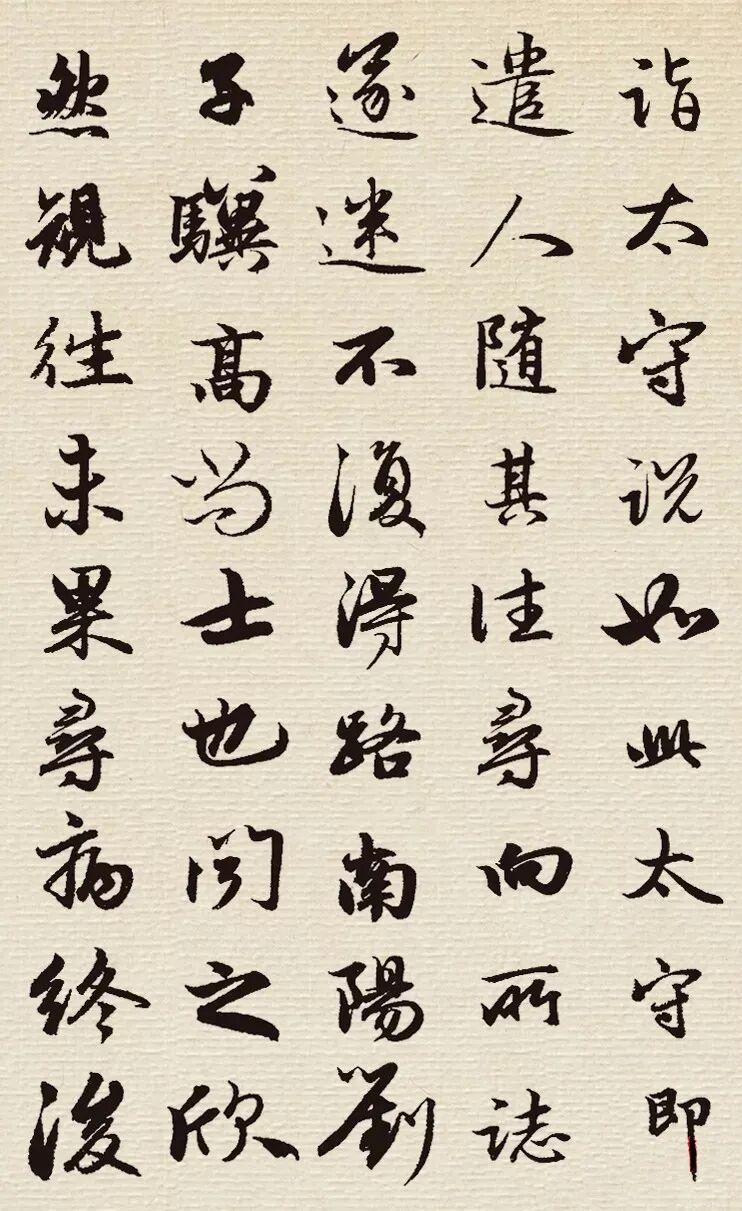 詣太守説如此太守即
遣人随其往尋向所誌
遂迷不復得路南陽劉
子驥高尚士也聞之欣
然覌往未果尋病終後